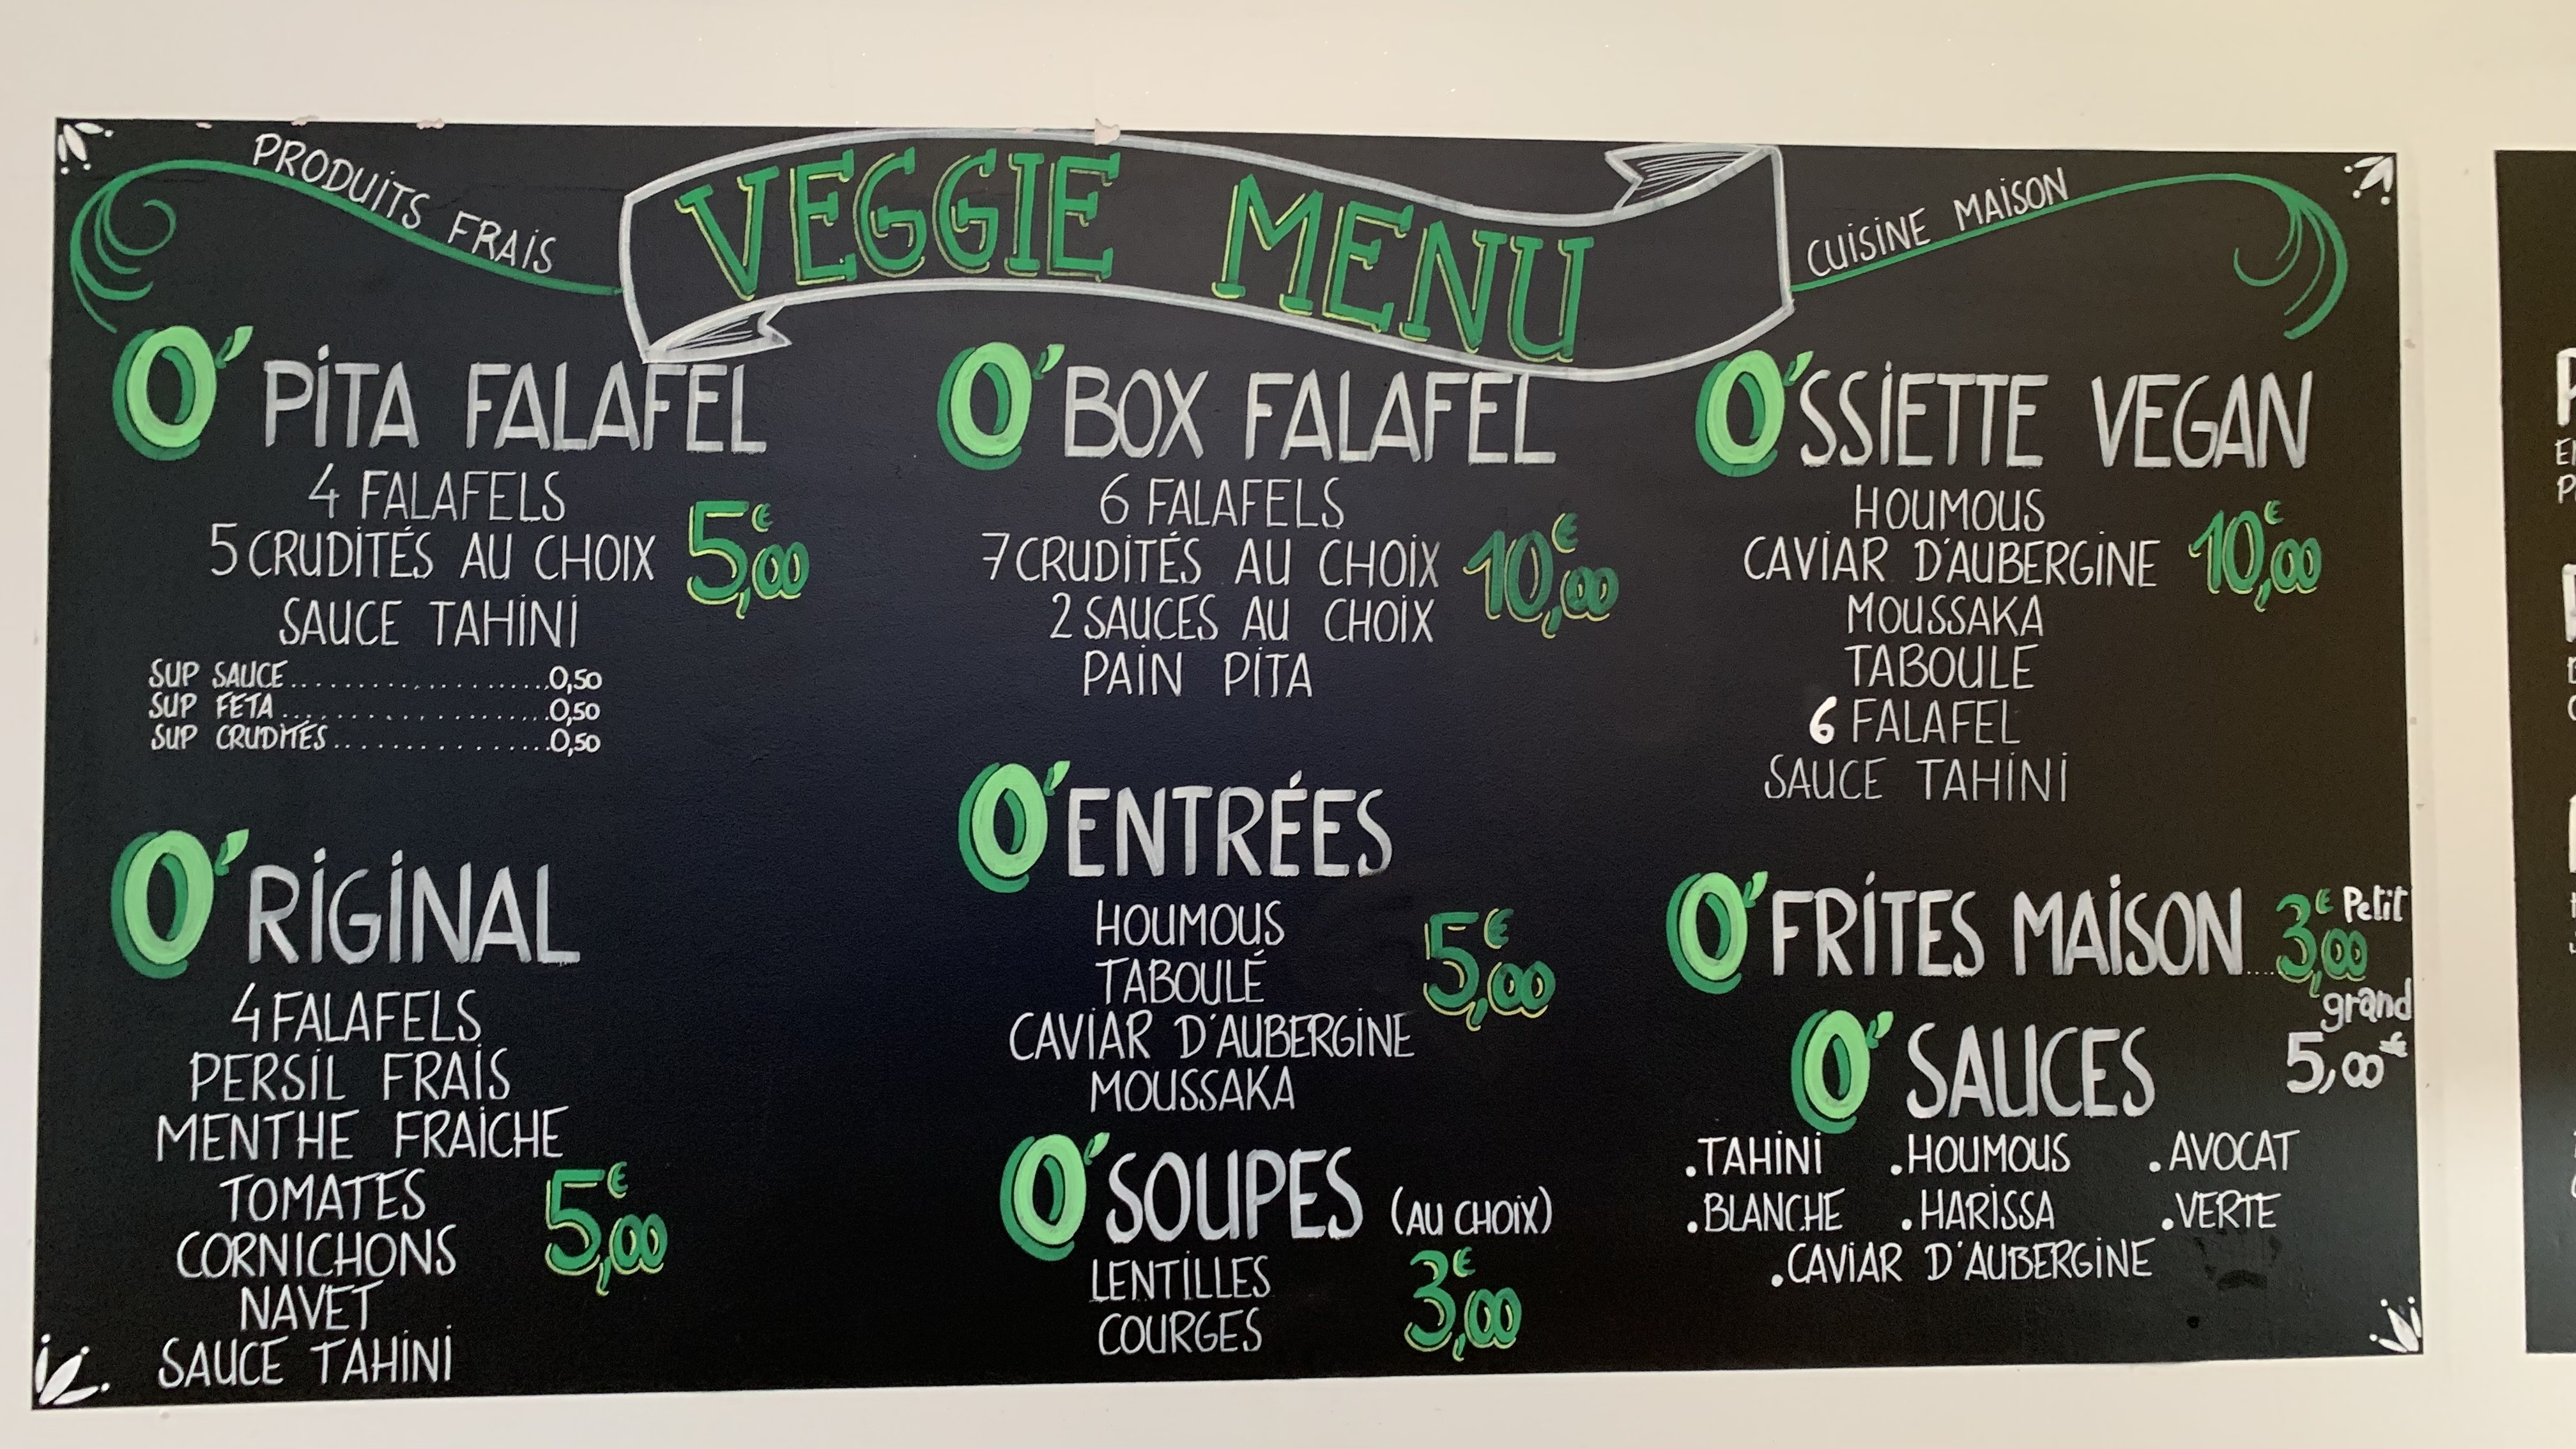 PRODUITS FRAIS
VEGGIE MENU
CUISINE MAISON
O' PITA FALAFEL
4 FALAFELS
5 CRUDITÉS AU CHOIX
5,00€
SAUCE TAHINI
SUP SAUCE.....................0,50
SUP FETA.....................0,50
SUP CRUDITÉS.................0,50
O'RIGINAL
4 FALAFELS
PERSIL FRAIS
MENTHE FRAICHE
TOMATES
CORNICHONS
5,00€
NAVET
SAUCE TAHINI
O' BOX FALAFEL
6 FALAFELS
7 CRUDITÉS AU CHOIX
10,00€
2 SAUCES AU CHOIX
PAIN PITA
O' ENTRÉES
HOUMOUS
TABOULÉ
5,00€
CAVIAR D'AUBERGINE
MOUSSAKA
O' SOUPES (AU CHOIX)
LENTILLES
COURGES
3,00€
O'SSIETTE VEGAN
HOUMOUS
CAVIAR D'AUBERGINE
10,00€
MOUSSAKA
TABOULE
6 FALAFEL
SAUCE TAHINI
O' FRITES MAISON....3,00€ Petit
grand
5,00€
O' SAUCES
.TAHINI .HOUMOUS .AVOCAT
.BLANCHE .HARISSA .VERTE
.CAVIAR D'AUBERGINE